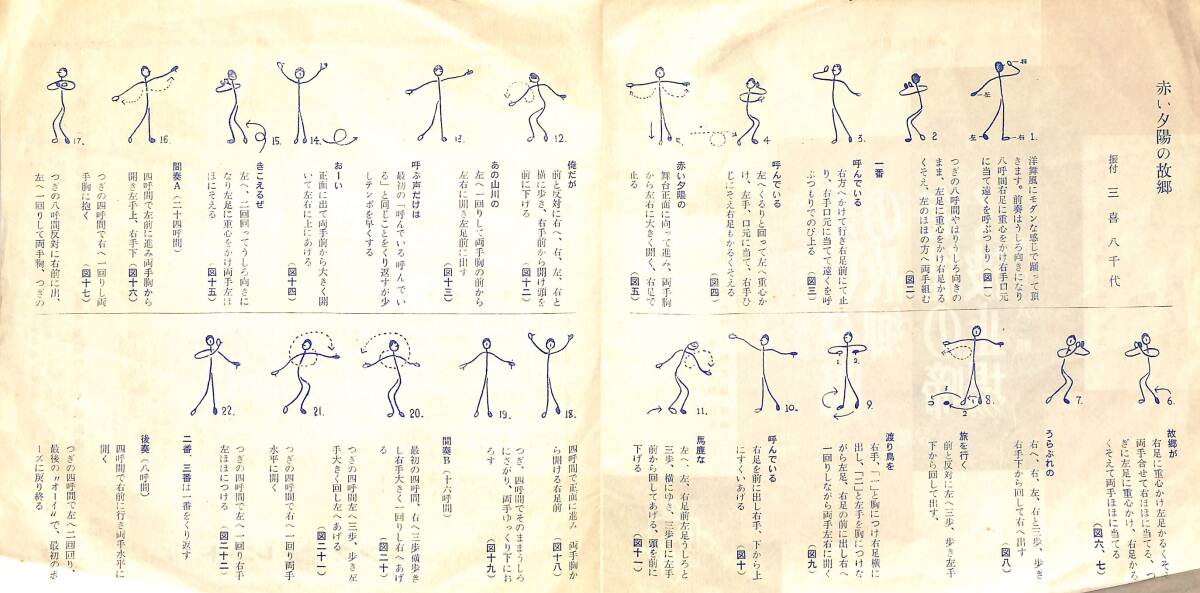 赤い夕陽の故郷
振付 三喜八千代
1.
2
3.
4
5.
右
左
左
右
洋舞風にモダンな感じで踊って頂
きます。前奏はうしろ向きになり
八呼間右足に重心をかけ右手口元
に当て遠くを呼ぶつもり
(図一)
つぎの八呼間やはりうしろ向きの
まま、左足に重心をかけ右足かる
くそえ、左のほほの方へ両手組む
(図二)
一番
呼んでいる
右方へかけて行き右足前にて止
り、右手口元に当てて遠くを呼
ぶつもりでのび上る
(図三)
呼んでいる
左へくるりと回って左へ重心か
け、左手、口元に当て、右手ひ
じにそえ右足もかるくそえる
(図四)
赤い夕陽の
舞台正面に向って進み、両手胸
から左右に大きく開く、右足で
止る
(図五)
6.
7.
8.
9.
10.
11.
故郷が
右足に重心かけ左足かるく、そえ
両手合せて右ほほに当てる、つ
ぎに左足に重心かけ、右足かる
くそえて両手ほほに当てる
(図六、七)
うらぶれの
右へ、右、左、右と三歩、歩き
右手下から回して右へ出す
(図八)
旅を行く
前と反対に左へ三歩、歩き左手
下から回して出す、
渡り鳥を
右手、「一」と胸につけ右足横に
出し、「二」と左手を胸につけな
がら左足、右足の前に出し右へ
一回りしながら両手左右に開く
(図九)
呼んでいる
右足を前に出し右手、下から上
にすくいあげる
(図十)
馬鹿な
左へ、左、右足前左足うしろと
三歩、横にゆき、三歩目に左手
前から回してあげる、頭を前に
(図十一)
12.
13.
14.
15.
16.
17.
俺だが
前と反対に右へ、右、左、右と
横に歩き、右手前から開け頭を
前に下げる
(図十二)
あの山川の
左へ一回りして両手胸の前から
左右に開き左足前に出す
(図十三)
呼ぶ声だけは
最初の「呼んでいる呼んでい
る」と同じことをくり返すが少
しテンポを早くする
おーい
正面に出て両手前から大きく開
いて左右に上にあげる
(図十四)
きこえるぜ
左へ、二回回ってうしろ向きに
なり左足に重心をかけ両手左ほ
ほにそえる
(図十五)
間奏A(二十四呼間)
四呼間で左前に進み両手胸から
開き左手上、右手下
(図十六)
つぎの四呼間で右へ一回りし両
手胸に抱く
(図十七)
つぎの八呼間反対に右前に出、
左へ一回りして両手胸、つぎの
18.
19.
20.
21.
22.
四呼間で正面に進み、両手胸か
ら開ける右足前
(図十八)
つぎ、四呼間でそのままうしろ
にさがり、両手ゆっくり下にお
ろす
(図十九)
間奏B(十六呼間)
最初の四呼間、右へ三歩横歩き
し右手大きく一回りし右へあげ
る
(図二十)
つぎの四呼間左へ三歩、歩き左
手大きく回し左へあげる
(図二十一)
つぎの四呼間で右へ一回り両手
水平に開く
つぎの四呼間で左へ一回り右手
左ほほにつける
(図二十二)
二番、三番は一番をくり返す
後奏(八呼間)
四呼間で右前に行き両手水平に
開く
つぎの四呼間で左へ二回回り、
最後の〝オーイ〟で、最初のポ
ーズに戻り終る